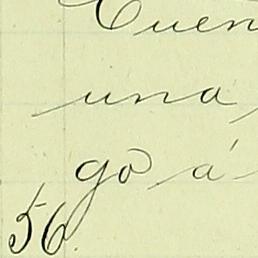 Cuen
una
go á
56.